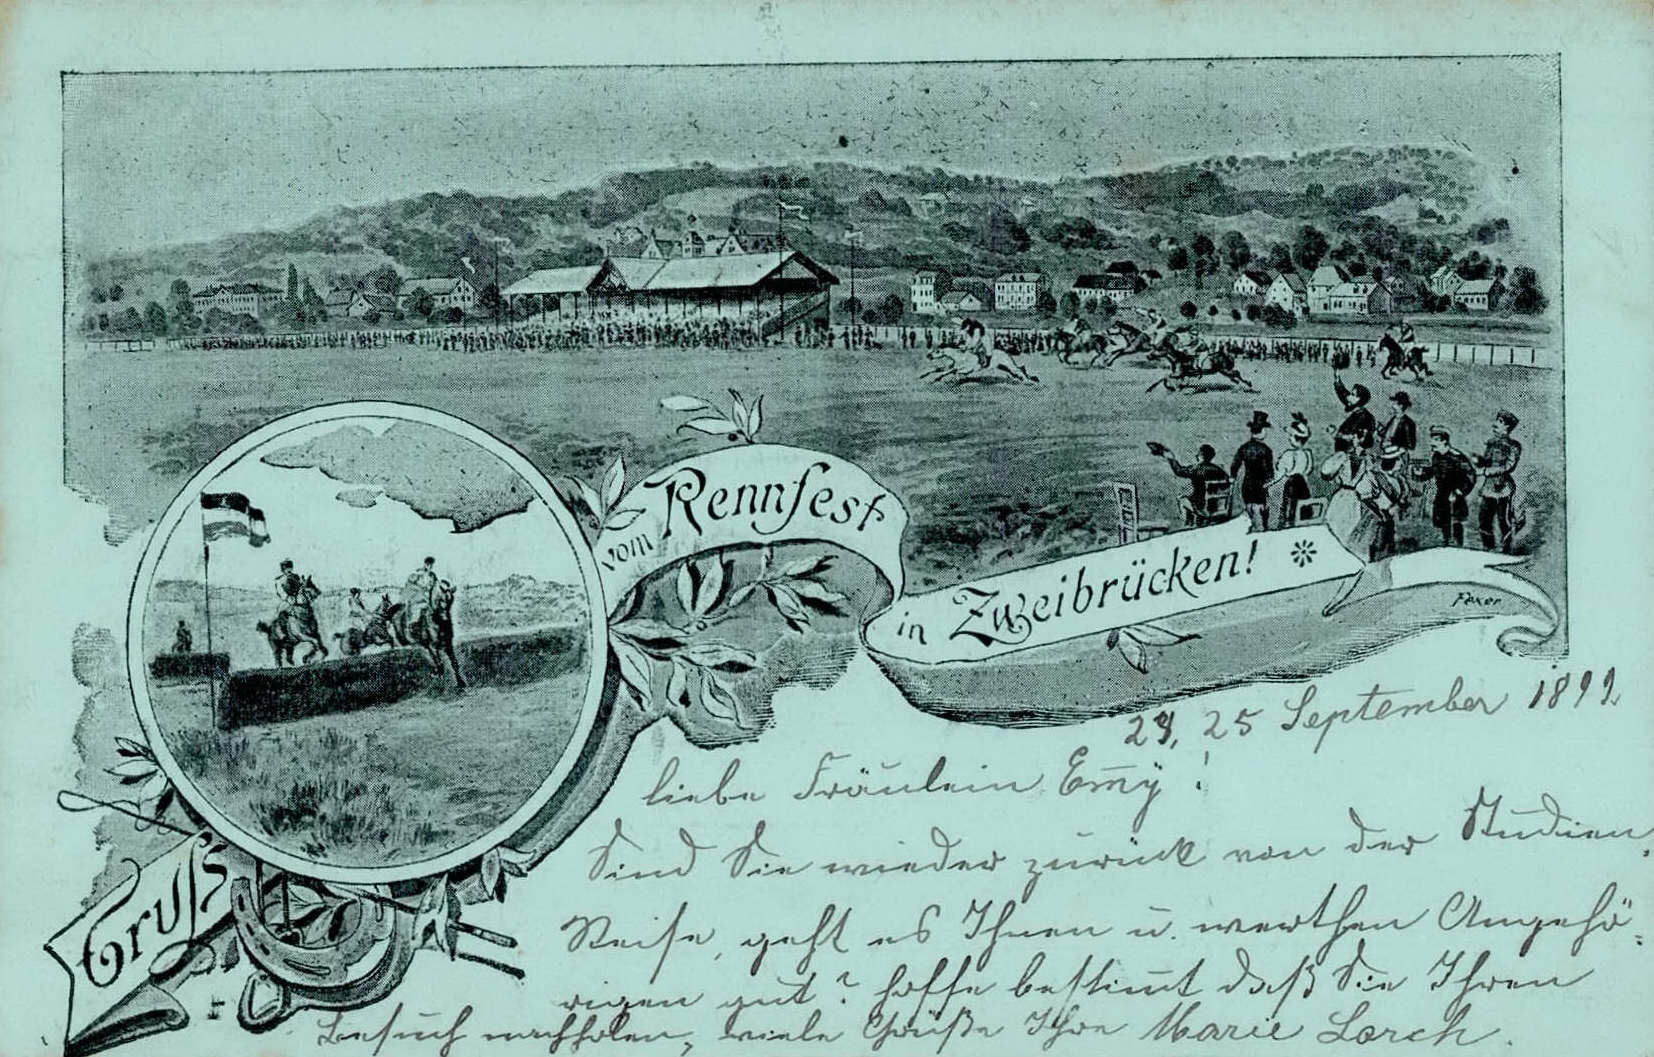 Gruß
vom Rennfest
in Zweibrücken!
Fexer
24, 25 September 1899
liebe Fräulein Em̅y!
Sind Sie wieder zurück von der Studien-
Reise, geht es Ihnen u. werthen Angehö-
rigen gut? hoffe bestim̅t daß Sie Ihren
Besuch nachholen, viele Grüße Ihre Marie Lorch.